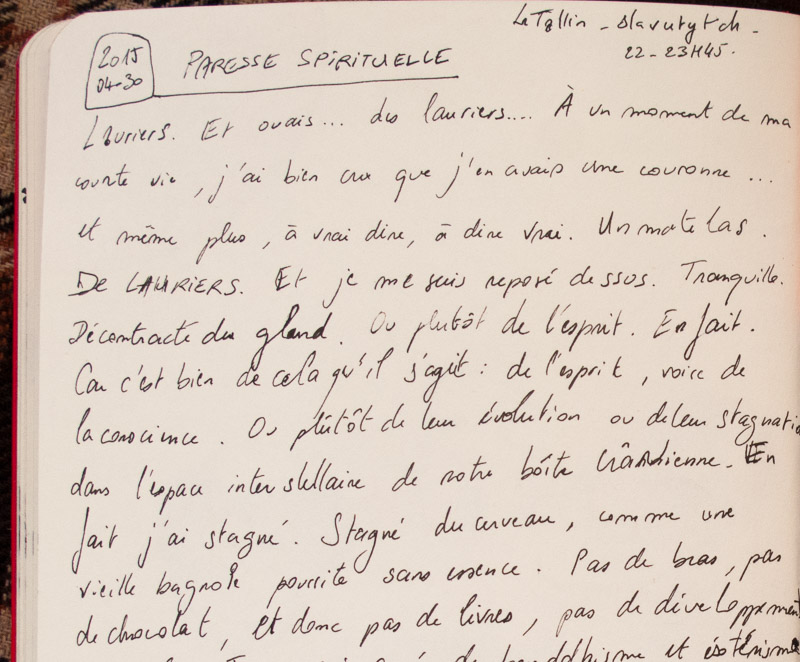 Le Tallin - Slavutytch -
22 - 23H45.
2015
04-30
PARESSE SPIRITUELLE
Lauriers. Et ouais... des lauriers.... À un moment de ma
courte vie, j'ai bien cru que j'en avais une couronne...
et même plus, à vrai dire, à dire vrai. Un matelas.
DE LAURIERS. Et je me suis reposé dessus. Tranquille.
Décontracté du gland. Ou plutôt de l'esprit. En fait.
Car c'est bien de cela qu'il s'agit : de l'esprit, voire de
la conscience. Ou plutôt de leur évolution ou de leur stagnation
dans l'espace interstellaire de notre boîte crânienne. En
fait j'ai stagné. Stagné du cerveau, comme une
vieille bagnole pourrite sans essence. Pas de bras, pas
de chocolat, et donc pas de livres, pas de développement
de bouddhisme et ésotérisme